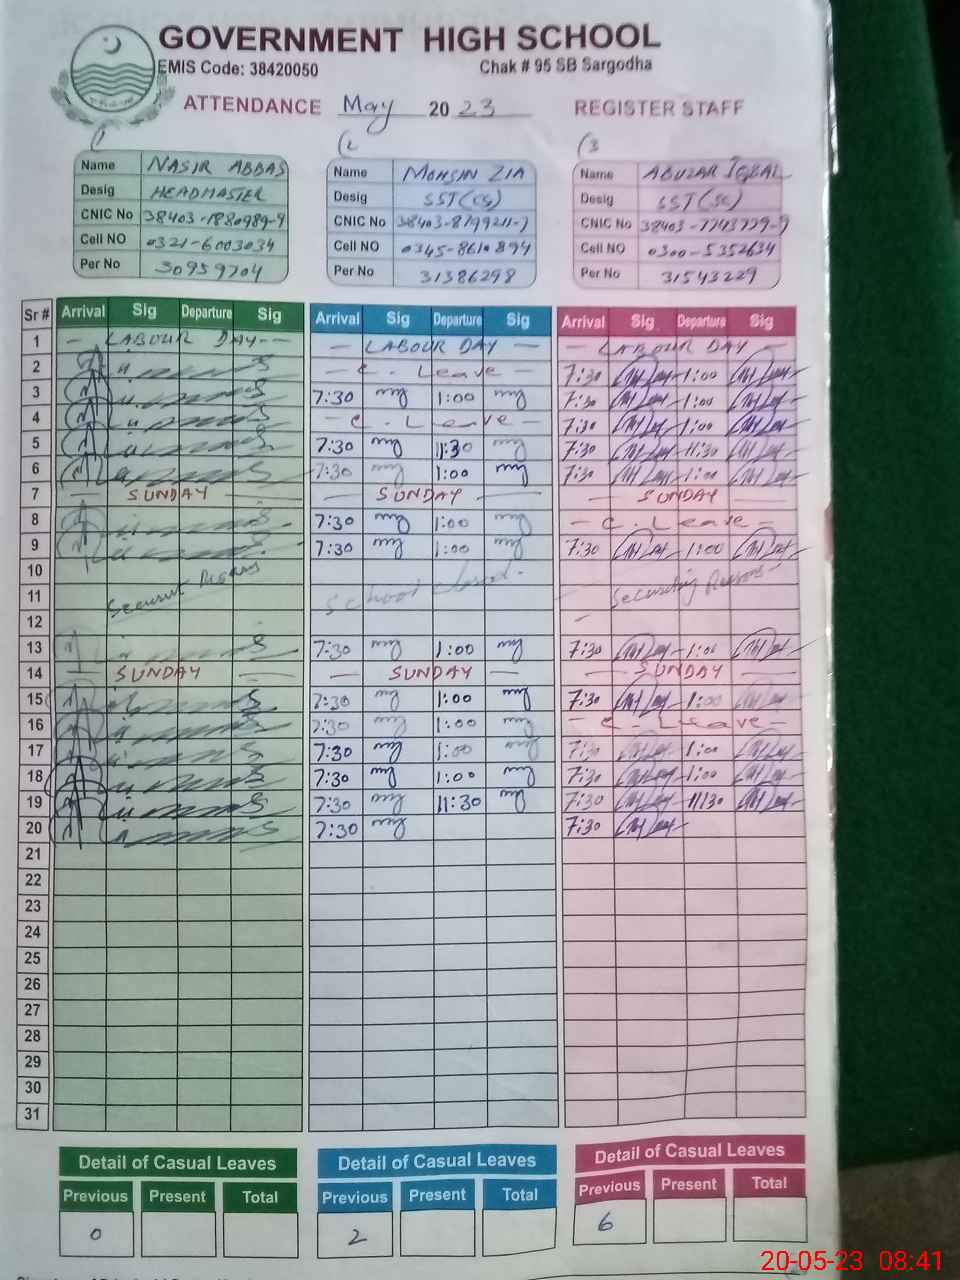 GOVERNMENT HIGH SCHOOL
EMIS Code: 38420050 Chak # 95 SB Sargodha
ATTENDANCE May 2023 REGISTER STAFF
(1 (2 (3
Name NASIR ABBAS Name MOHSIN ZIA Name ABUZAR IQBAL
Desig HEADMASTER Desig SST(CS) Desig SST(SC)
CNIC No 38403-1880989-9 CNIC No 38403-8799211-7 CNIC No 38403-7743779-9
Cell NO 0321-6003034 Cell NO 0345-8610894 Cell NO 0300-5352634
Per No 30959704 Per No 31386298 Per No 31543229
Sr # Arrival Sig Departure Sig Arrival Sig Departure Sig Arrival Sig Departure Sig
1 - LABOUR DAY - - LABOUR DAY - - LABOUR DAY -
2 - C. Leave - 7:30 1:00
3 7:30 1:00 7:30 1:00
4 - C. Leave - 7:30 1:00
5 7:30 11:30 7:30 11:30
6 7:30 1:00 7:30 1:00
7 SUNDAY - SUNDAY - - SUNDAY
8 7:30 1:00 - C. Leave -
9 7:30 1:00 7:30 1:00
10 School closed Security Reasons
11
12
13 7:30 1:00 7:30 1:00
14 SUNDAY - SUNDAY - - SUNDAY
15 7:30 1:00 7:30 1:00
16 7:30 1:00 - C. Leave -
17 7:30 1:00 7:30 1:00
18 7:30 1:00 7:30 1:00
19 7:30 11:30 7:30 11:30
20 7:30 7:30
21
22
23
24
25
26
27
28
29
30
31
Detail of Casual Leaves Detail of Casual Leaves Detail of Casual Leaves
Previous Present Total Previous Present Total Previous Present Total
0 2 6
20-05-23 08:41